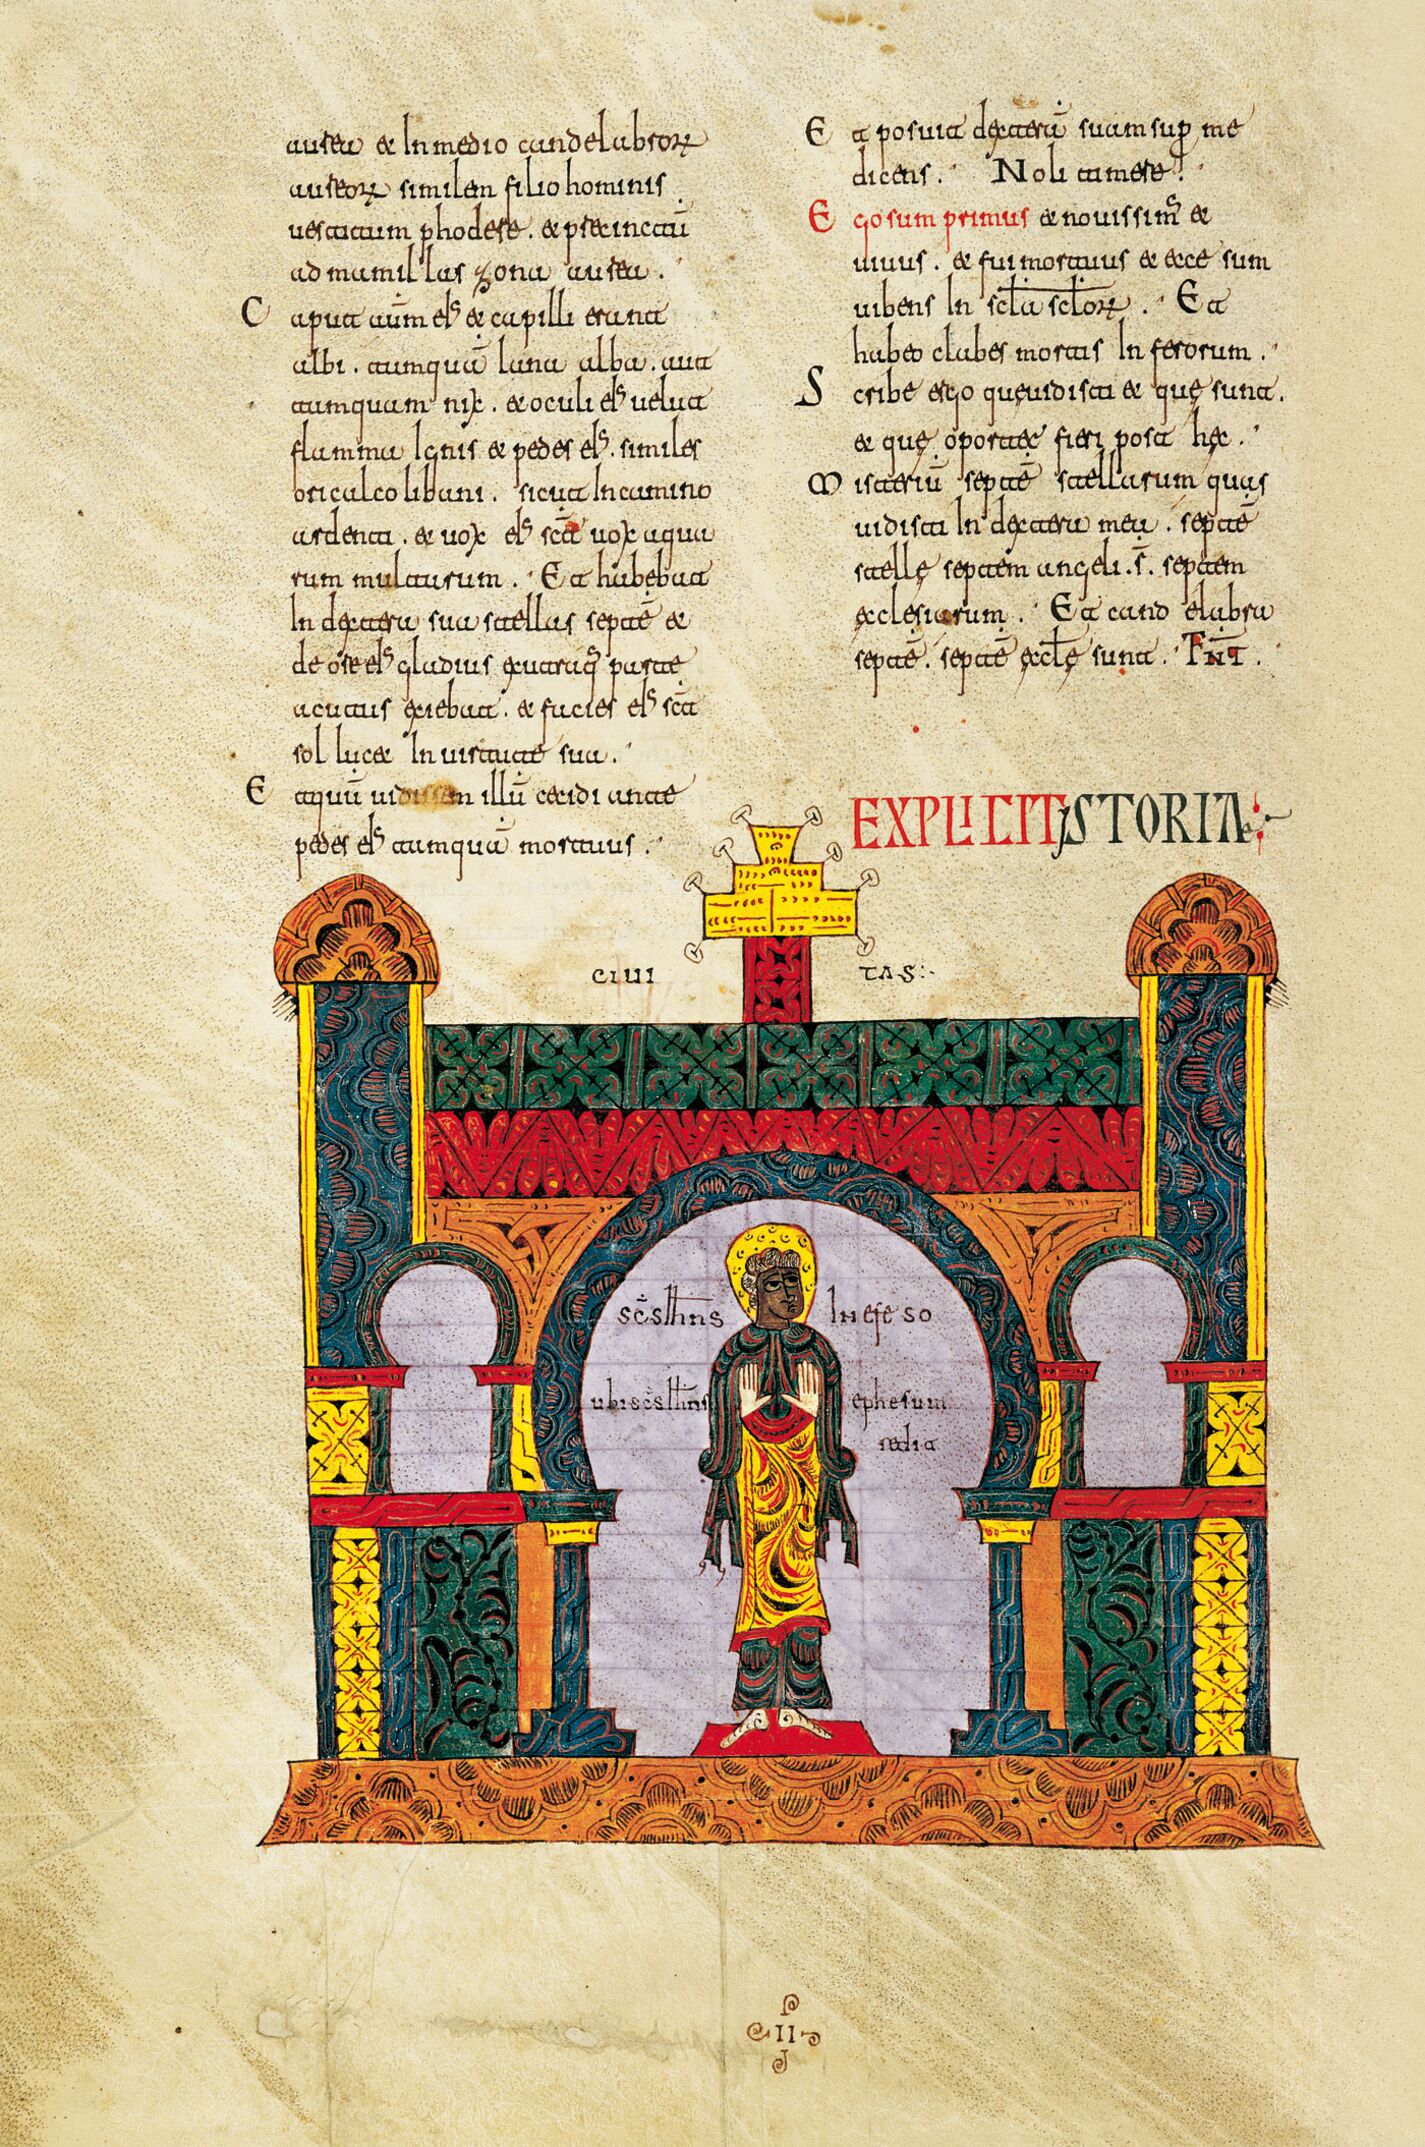 aurea & In medio candelabroꝝ
aureoꝝ similem filio hominis
uestitum phodere. & precinctū
ad mamillas zona aurea.
C aput aūm eiꝰ & capilli erant
albi. tamquā lana alba. aut
tamquam nix. & oculi eiꝰ uelut
flamma Ignis & pedes eiꝰ. similes
oricalco libani. sicut In camino
ardenti. & uox eiꝰ sct̄ uox aqua
rum multarum. Et habębat
In dextera sua stellas septē &
de ore eiꝰ gladius ex utraqꝫ parte
acutus exiebat. & facies eiꝰ sct̄
sol luc& In uirtute sua.
E t quū uidissem illū cecidi ante
pedes eiꝰ tamquā mortuus.
E t posuit dexterā suam sup me
dicens. Noli timere.
E go sum primus & nouissimꝰ &
uiuus. & fui mortuus & ecce sum
uibens In scl̄a scl̄oꝝ. Et
habeo clabes mortis Inferorum.
S cribe ergo que uidisti & quę sunt.
& quę oport& fieri post hęc.
M isteriū septē stellarum quas
uidisti In dextera mea. septē
stellę septem angeli. s̄. septem
ęclesiarum. Et candelabra
septē. septē ęcl̄ę sunt. F̄N̄T̄.
EXPLICIT ISTORIA
CIUI TAS
sc̄s Iħns In efeso
ubi sc̄s Iħns ephesum
sedit
P
C II
J